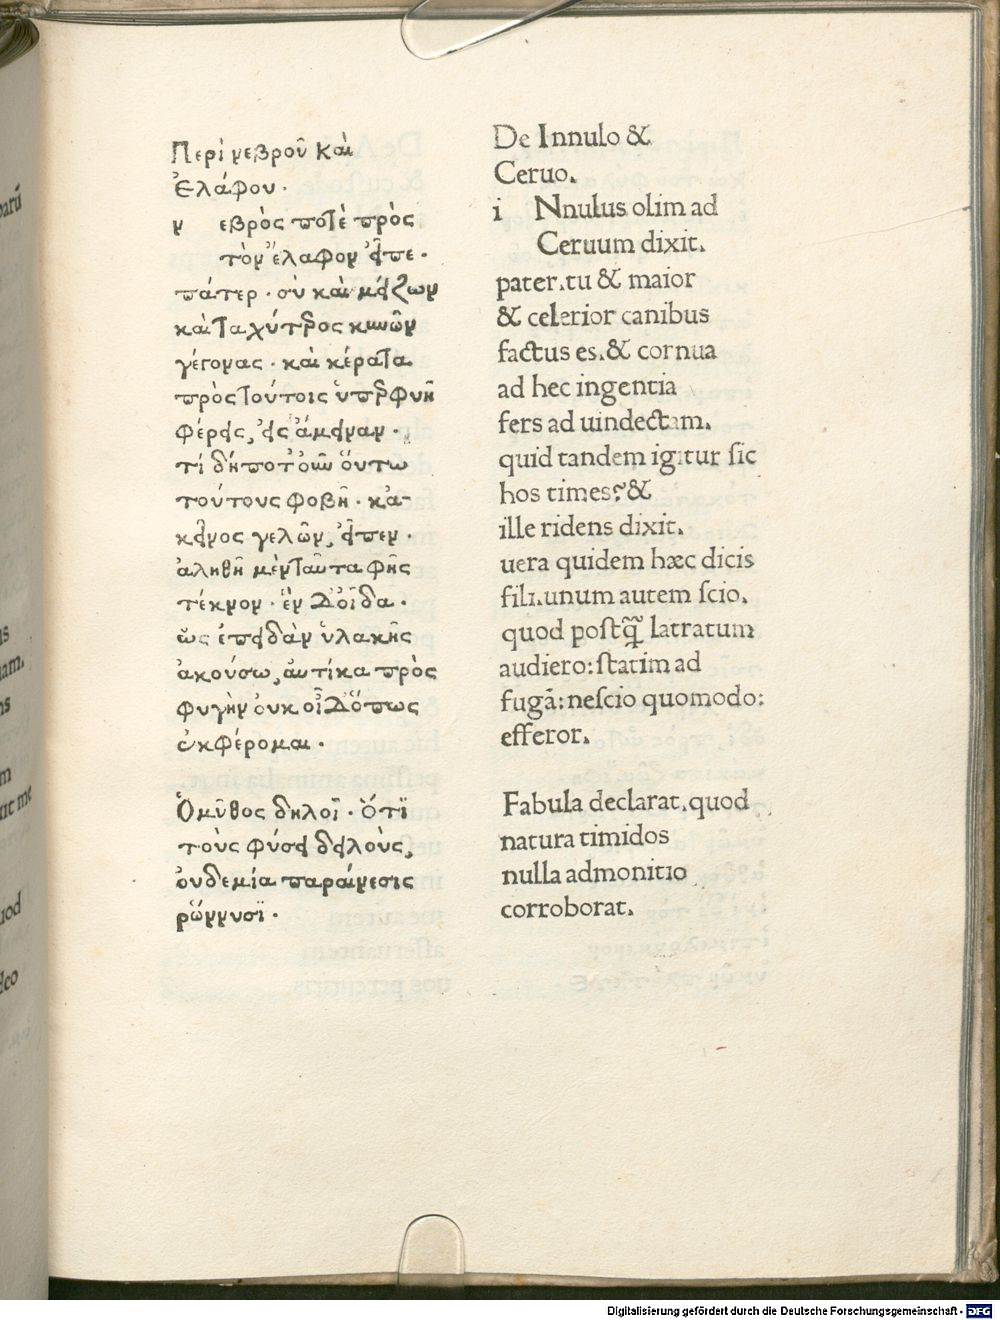 Περὶ νεβροῦ καὶ
Ἐλάφου.
ν εβρὸς ποτὲ πρὸς
τὸν ἔλαφον εἶπε.
πάτερ. σὺ καὶ μείζων
καὶ ταχύτερος κυνῶν
γέγονας. καὶ κέρατα
πρὸς τούτοις ὑπερφυῆ
φέρεις, εἰς ἄμειναν.
τί δήποτ' οὖν οὕτω
τούτους φοβῆ. κἀ-
κεῖνος γελῶν, εἶπεν.
ἀληθῆ μὲν ταῦτα φῂς
τέκνον. ἓν δ' οἶδα.
ὡς ἐπειδὰν ὑλακῆς
ἀκούσω, αὐτίκα πρὸς
φυγὴν οὐκ οἶδ' ὅπως
ἐκφέρομαι.
Ὁ μῦθος δηλοῖ. ὅτι
τοὺς φύσει δειλοὺς,
οὐδεμία παραίνεσις
ῥώννυσι.
De Innulo &
Ceruo.
i Nnulus olim ad
Ceruum dixit.
pater.tu & maior
& celerior canibus
factus es.& cornua
ad hec ingentia
fers ad uindectam.
quid tandem igitur sic
hos times?&
ille ridens dixit.
uera quidem hæc dicis
fili.unum autem scio.
quod postq̃ latratum
audiero:statim ad
fugã:nescio quomodo:
efferor.
Fabula declarat.quod
natura timidos
nulla admonitio
corroborat.
Digitalisierung gefördert durch die Deutsche Forschungsgemeinschaft - DFG